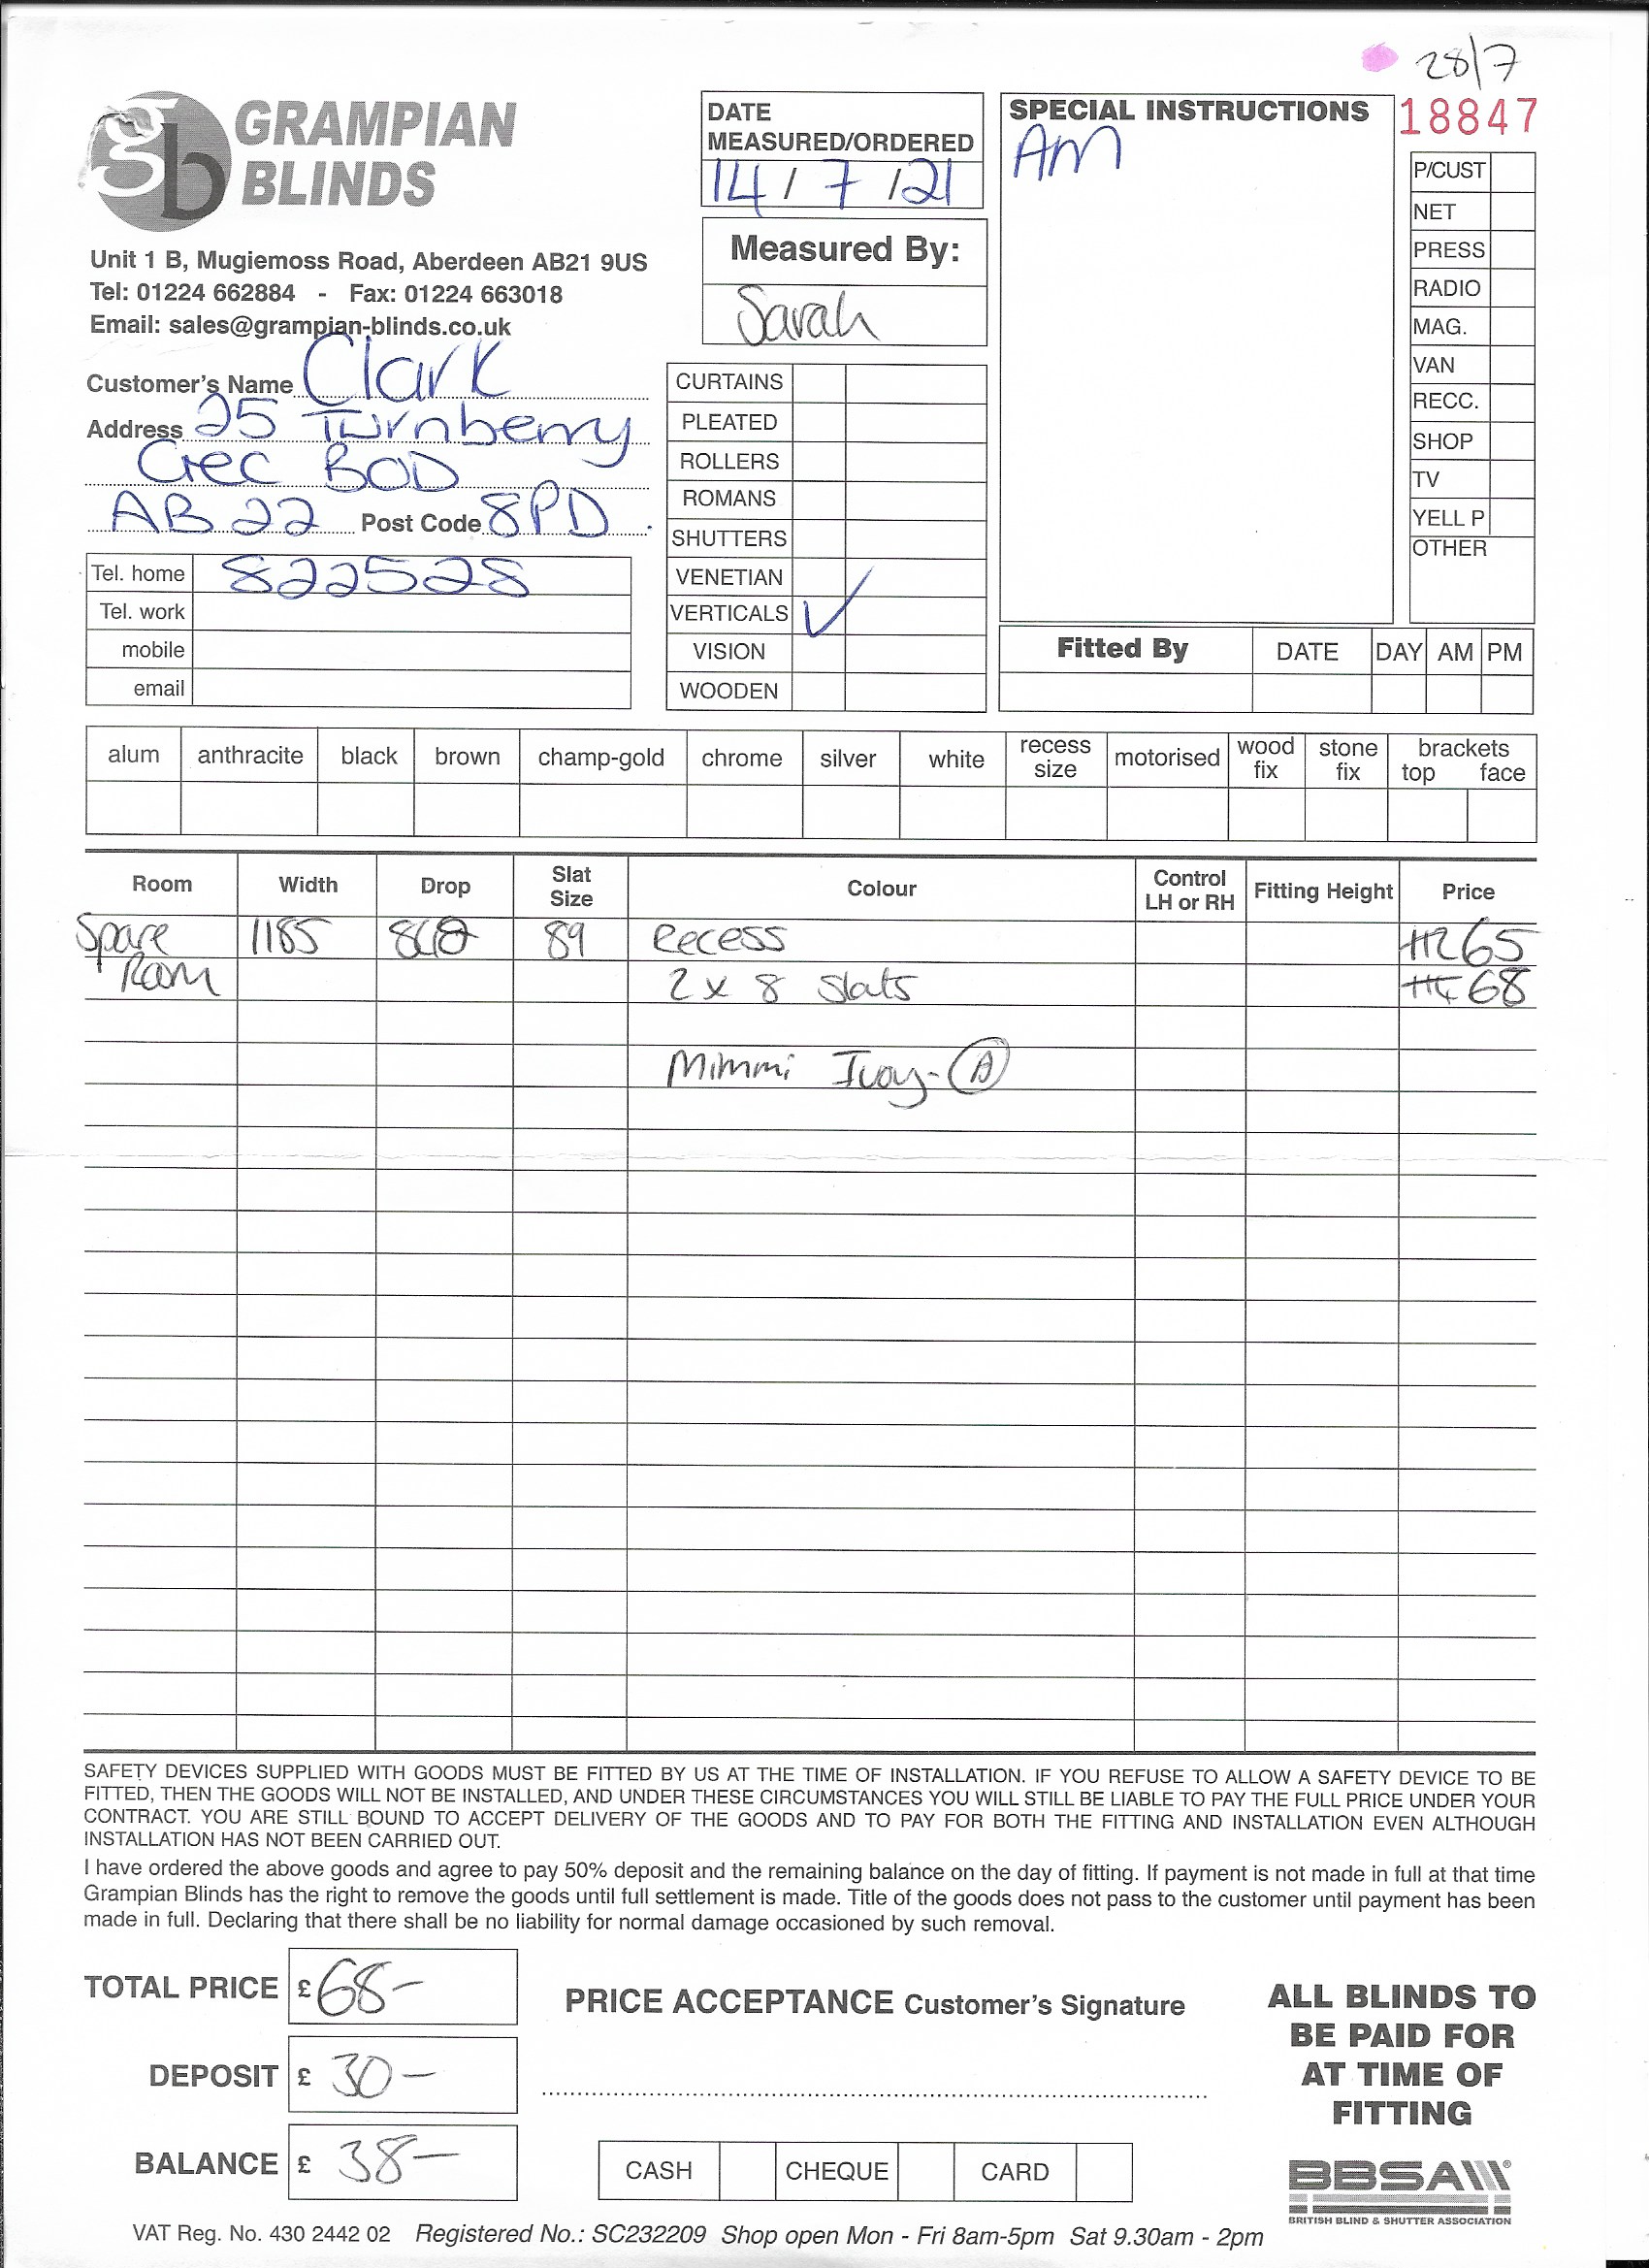 28/7
GRAMPIAN
BLINDS
Unit 1 B, Mugiemoss Road, Aberdeen AB21 9US
Tel: 01224 662884 - Fax: 01224 663018
Email: sales@grampian-blinds.co.uk
Customer's Name Clark
Address 25 Turnberry
Cres BOD
AB22 Post Code 8PD
Tel. home 822528
Tel. work
mobile
email
DATE
MEASURED/ORDERED
14/7/21
Measured By:
Sarah
CURTAINS
PLEATED
ROLLERS
ROMANS
SHUTTERS
VENETIAN
VERTICALS ✓
VISION
WOODEN
SPECIAL INSTRUCTIONS
AM
18847
P/CUST
NET
PRESS
RADIO
MAG.
VAN
RECC.
SHOP
TV
YELL P
OTHER
Fitted By DATE DAY AM PM
alum anthracite black brown champ-gold chrome silver white recess size motorised wood fix stone fix brackets top face
Room Width Drop Slat Size Colour Control LH or RH Fitting Height Price
Spare 1185 89 Recess 65
Room 2 x 8 Slats 68
Mimmi Ivory - A
SAFETY DEVICES SUPPLIED WITH GOODS MUST BE FITTED BY US AT THE TIME OF INSTALLATION. IF YOU REFUSE TO ALLOW A SAFETY DEVICE TO BE
FITTED, THEN THE GOODS WILL NOT BE INSTALLED, AND UNDER THESE CIRCUMSTANCES YOU WILL STILL BE LIABLE TO PAY THE FULL PRICE UNDER YOUR
CONTRACT. YOU ARE STILL BOUND TO ACCEPT DELIVERY OF THE GOODS AND TO PAY FOR BOTH THE FITTING AND INSTALLATION EVEN ALTHOUGH
INSTALLATION HAS NOT BEEN CARRIED OUT.
I have ordered the above goods and agree to pay 50% deposit and the remaining balance on the day of fitting. If payment is not made in full at that time
Grampian Blinds has the right to remove the goods until full settlement is made. Title of the goods does not pass to the customer until payment has been
made in full. Declaring that there shall be no liability for normal damage occasioned by such removal.
TOTAL PRICE £ 68-
DEPOSIT £ 30-
BALANCE £ 38-
PRICE ACCEPTANCE Customer's Signature
CASH CHEQUE CARD
ALL BLINDS TO
BE PAID FOR
AT TIME OF
FITTING
BBSA
BRITISH BLIND & SHUTTER ASSOCIATION
VAT Reg. No. 430 2442 02 Registered No.: SC232209 Shop open Mon - Fri 8am-5pm Sat 9.30am - 2pm